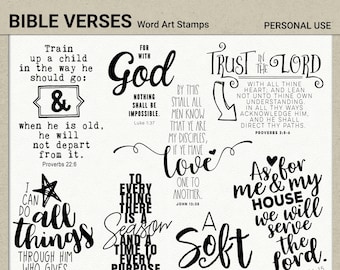 BIBLE VERSES Word Art Stamps
PERSONAL USE
Train
up a child
in the way he
should go:
&
when he is old,
he will
not depart
from it.
Proverbs 22:6
FOR
WITH
God
NOTHING
SHALL BE
IMPOSSIBLE.
Luke 1:37
TRUST IN THE LORD
WITH ALL THINE
HEART; AND LEAN
NOT UNTO THINE OWN
UNDERSTANDING.
IN ALL THY WAYS
ACKNOWLEDGE HIM,
AND HE SHALL
DIRECT THY PATHS.
PROVERBS 3:5-6
BY THIS
SHALL ALL
MEN KNOW
THAT YE ARE
MY DISCIPLES,
IF YE HAVE
love
ONE TO
ANOTHER.
JOHN 13:35
I
CAN
DO all
things
THROUGH HIM
WHO GIVES
TO
EVERY
THING
THERE
IS A
Season
AND A
TIME TO
EVERY
PURPOSE
A
Soft
As for
me & my
HOUSE
we will
serve
the lord.